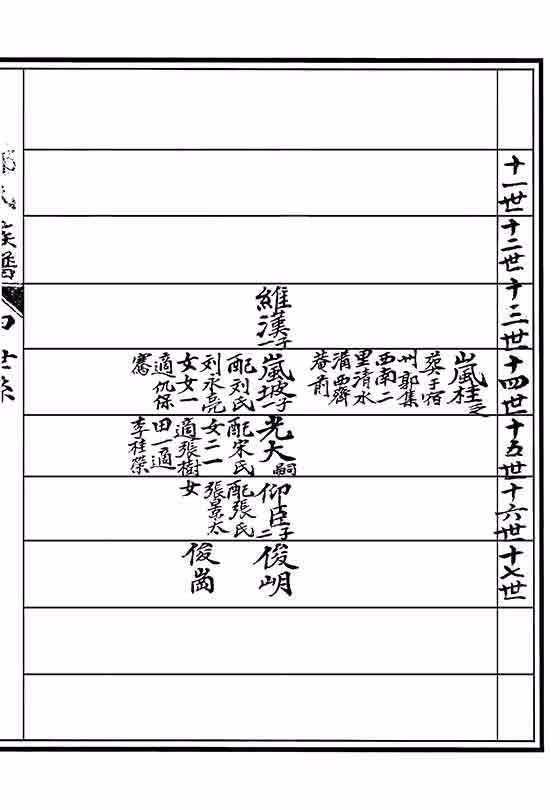 十一世
十二世
十三世
十四世
十五世
十六世
十七世
嵐桂
葬于宿
州郭集
西南二
里清水
溝西齊
菴前
維漢子
嵐坡子
配刘氏
刘永亮
女女一
適仇保
騫
光大嗣
配宋氏
女二一
適張樹
田一適
李桂榮
仰臣子二
配張氏
張景太
女
俊明
俊崗
氏族譜